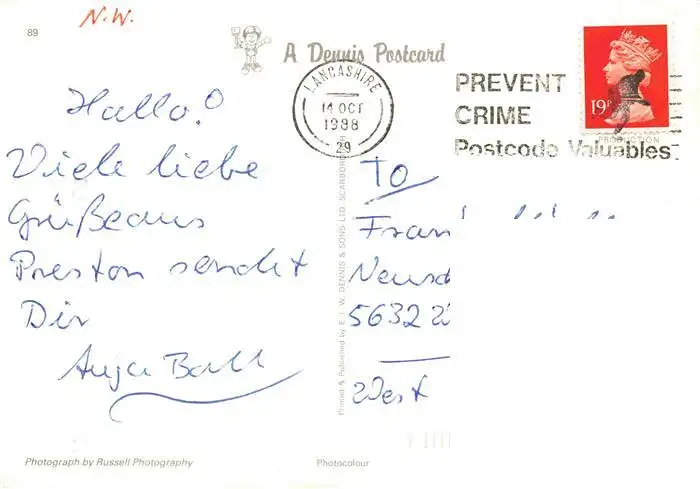 N.W.
89
A Dennis Postcard
LANCASHIRE
14 OCT
1988
29
PREVENT
CRIME
Postcode Valuables
19P
Hallo!
Viele liebe
Grüße aus
Preston sendet
Dir
Anja Ball
To
Fran
Neusd
5632
West
Printed & Published by E. T. W. DENNIS & SONS LTD. SCARBOROUGH
Photograph by Russell Photography
Photocolour